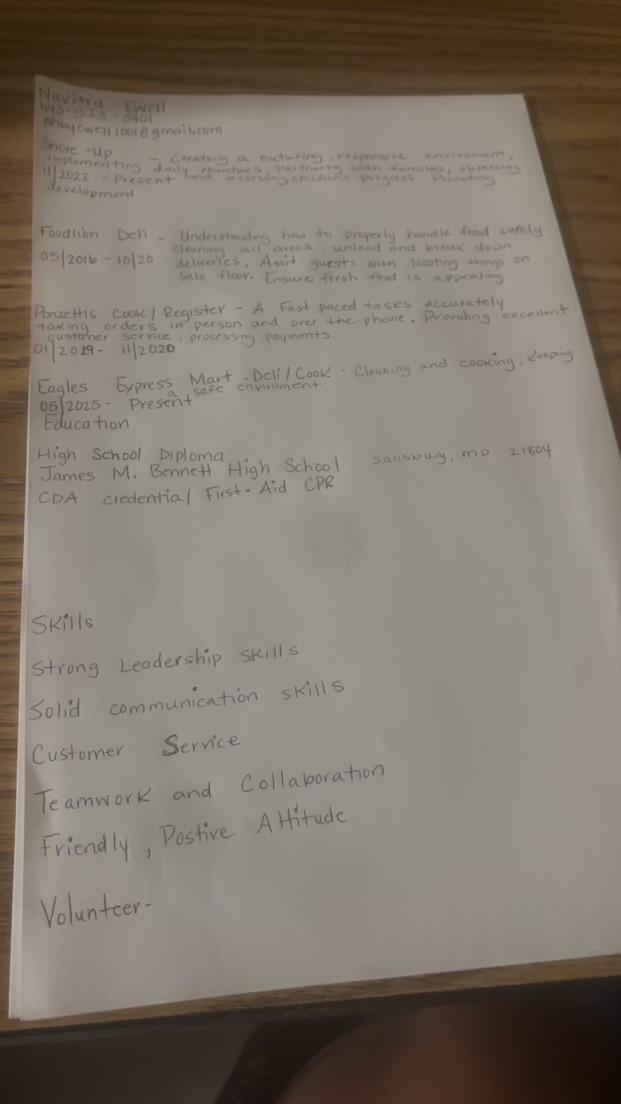 Navitra Ewell
443-523-5401
1001@gmail.com
Shore-Up
implementing - Creating a nuturing, responsive environment,
11/2022 - Present daily routines partnering with families, observing
and assesing children's progress Promoting
development
Foodlion Deli - Understanding how to properly handle food safely
05/2016 - 10/20 cleaning all areas, unload and break down
deliveries, Assit guests with locating things on
Sale floor. Ensure fresh food is appealing.
Ponzettis Cook/Register - A Fast paced tasks accurately
taking orders in person and over the phone. Providing excellent
customer service, processing payments.
01/2019- 11/2020
Eagles Express Mart -Deli/Cook - Cleaning and cooking, Keepig
a safe enviroment
05/2025- Present
Education
High School Diploma
James M. Bennett High School Salisbury, MD 21804
CDA credential First-Aid CPR
Skills
Strong Leadership skills
Solid communication skills
Customer Service
Teamwork and Collaboration
Friendly, Postive Attitude
Volunteer-